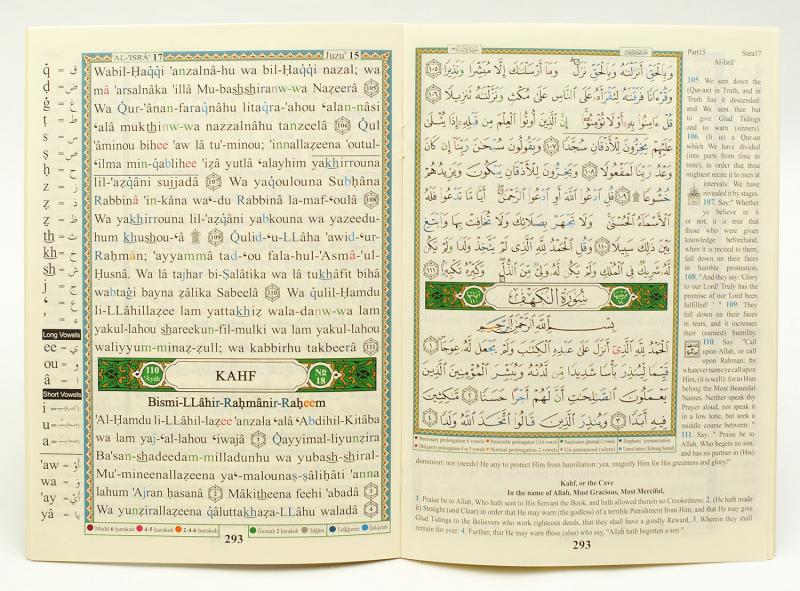 AL-'ISRÂ' 17
Juzu' 15
Wabil-Ḥaqqi 'anzalnâ-hu wa bil-Ḥaqqi nazal; wa
mâ 'arsalnâka 'illâ Mubashshiranw-wa Nazeerâ 105
Wa Qur-'ânan-faraqnâhu litaqra-'ahou ʻalan-nâsi
ʻalâ mukthinw-wa nazzalnâhu tanzeelâ 106 Qul
'âminou bihee 'aw lâ tu'minou; 'innallaẓeena 'outul-
ʻilma min-qablihee 'iẓâ yutlâ ʻalayhim yakhirrouna
lil-'aẓqâni sujjadâ 107 Wa yaqoulouna Subḥâna
Rabbinâ 'in-kâna waʻdu Rabbinâ la-mafʻoulâ 108
Wa yakhirrouna lil-'aẓqâni yabkouna wa yazeedu-
hum khushouʻâ 109 Qulid-ʻu-LLâha 'awid-ʻur-
Raḥmân; 'ayyammâ tad-ʻou fala-hul-'Asmâ-'ul-
Ḥusnâ. Wa lâ tajhar bi-Ṣalâtika wa lâ tukhâfit bihâ
wabtagi bayna ẓâlika Sabeelâ 110 Wa qulil-Ḥamdu
li-LLâhillaẓee lam yattakhiẓ wala-danw-wa lam
yakul-lahou shareekun-fil-mulki wa lam yakul-lahou
waliyyum-minaẓ-ẓull; wa kabbirhu takbeerâ 111
110 'Ayah
KAHF
No 18
Bismi-LLâhir-Raḥmânir-Raḥeem
'Al-Ḥamdu li-LLâhil-laẓee 'anzala ʻalâ ʻAbdihil-Kitâba
wa lam yaj-ʻal-lahou ʻiwajâ 1 Qayyimal-liyunẓira
Ba'san-shadeedam-milladunhu wa yubash-shiral-
Mu'-mineenallaẓeena ya-malounaṣ-ṣâliḥâti 'anna
lahum 'Ajran ḥasanâ 2 Mâkitheena feehi 'abadâ 3
Wa yunẓirallaẓeena qâluttakhaẓa-LLâhu waladâ 4
Madd 6 ḥarakah 4-5 ḥarakah 2-4-6 ḥarakah Gunnah 2 ḥarakah 'Idgâm Tafkheem Qalqalah
293
q̇ = ق
ḍ = ض
ġ = غ
ṭ = ط
s = س
ṣ = ص
ḥ = ح
z = ز
ẓ = ذ
th = ث
kh = خ
sh = ش
j = ج
Long Vowels
ee = ي
ou = و
â = ا
Short Vowels
i =
u =
a =
'aw = أَوْ
wa = وَ
'ay = أَيْ
yâ = يَا
وَبِالْحَقِّ أَنْزَلْنَاهُ وَبِالْحَقِّ نَزَلَ وَمَا أَرْسَلْنَاكَ إِلَّا مُبَشِّرًا وَنَذِيرًا ١٠٥
وَقُرْءَانًا فَرَقْنَاهُ لِتَقْرَأَهُ عَلَى النَّاسِ عَلَى مُكْثٍ وَنَزَّلْنَاهُ تَنْزِيلًا ١٠٦
قُلْ ءَامِنُوا بِهِ أَوْ لَا تُؤْمِنُوا إِنَّ الَّذِينَ أُوتُوا الْعِلْمَ مِنْ قَبْلِهِ إِذَا يُتْلَى
عَلَيْهِمْ يَخِرُّونَ لِلْأَذْقَانِ سُجَّدًا ١٠٧ وَيَقُولُونَ سُبْحَانَ رَبِّنَا إِنْ كَانَ
وَعْدُ رَبِّنَا لَمَفْعُولًا ١٠٨ وَيَخِرُّونَ لِلْأَذْقَانِ يَبْكُونَ وَيَزِيدُهُمْ
خُشُوعًا ١٠٩ قُلِ ادْعُوا اللَّهَ أَوِ ادْعُوا الرَّحْمَنَ أَيًّا مَا تَدْعُوا فَلَهُ
الْأَسْمَاءُ الْحُسْنَى وَلَا تَجْهَرْ بِصَلَاتِكَ وَلَا تُخَافِتْ بِهَا وَابْتَغِ
بَيْنَ ذَلِكَ سَبِيلًا ١١٠ وَقُلِ الْحَمْدُ لِلَّهِ الَّذِي لَمْ يَتَّخِذْ وَلَدًا وَلَمْ يَكُنْ
لَهُ شَرِيكٌ فِي الْمُلْكِ وَلَمْ يَكُنْ لَهُ وَلِيٌّ مِنَ الذُّلِّ وَكَبِّرْهُ تَكْبِيرًا ١١١
سُورَةُ الْكَهْفِ
بِسْمِ اللَّهِ الرَّحْمَنِ الرَّحِيمِ
الْحَمْدُ لِلَّهِ الَّذِي أَنْزَلَ عَلَى عَبْدِهِ الْكِتَابَ وَلَمْ يَجْعَلْ لَهُ عِوَجًا ١
قَيِّمًا لِيُنْذِرَ بَأْسًا شَدِيدًا مِنْ لَدُنْهُ وَيُبَشِّرَ الْمُؤْمِنِينَ الَّذِينَ
يَعْمَلُونَ الصَّالِحَاتِ أَنَّ لَهُمْ أَجْرًا حَسَنًا ٢ مَاكِثِينَ
فِيهِ أَبَدًا ٣ وَيُنْذِرَ الَّذِينَ قَالُوا اتَّخَذَ اللَّهُ وَلَدًا ٤
Necessary prolongation 6 vowels Permissible prolongation 2,4,6 vowels Nazalization (ghunnah) 2 vowels Emphatic pronunciation
Obligatory prolongation 4 or 5 vowels Normal prolongation 2 vowels Un announced (silent) Unrest letters (Echoing Sound)
Part15
Sura17
Al-Isrâ'
105. We sent down the
(Qur-an) in Truth, and in
Truth has it descended:
and We sent thee but
to give Glad Tidings
and to warn (sinners).
106. (It is) a Qur-an
which We have divided
(into parts from time to
time), in order that thou
mightest recite it to men at
intervals: We have
revealed it by stages.
107. Say: " Whether
ye believe in it
or not, it is true that
those who were given
knowledge beforehand,
when it is recited to them,
fall down on their faces
in humble prostration,
108. "And they say: 'Glory
to our Lord! Truly has the
promise of our Lord been
fulfilled!' " 109. They
fall down on their faces
in tears, and it increases
their (earnest) humility.
110. Say: "Call
upon Allah, or call
upon Rahman: by
whatever name ye call upon
Him, (it is well): for to Him
belong the Most Beautiful
Names. Neither speak thy
Prayer aloud, nor speak it
in a low tone, but seek a
middle course between."
111. Say: " Praise be to
Allah, Who begets no son,
and has no partner in (His)
dominion: nor (needs) He any to protect Him from humiliation: yea, magnify Him for His greatness and glory!"
Kahf, or the Cave
In the name of Allah, Most Gracious, Most Merciful.
1. Praise be to Allah, Who hath sent to His Servant the Book, and hath allowed therein no Crookedness: 2. (He hath made
it) Straight (and Clear) in order that He may warn (the godless) of a terrible Punishment from Him, and that He may give
Glad Tidings to the Believers who work righteous deeds, that they shall have a goodly Reward, 3. Wherein they shall
remain for ever: 4. Further, that He may warn those (also) who say, "Allah hath begotten a son "
293